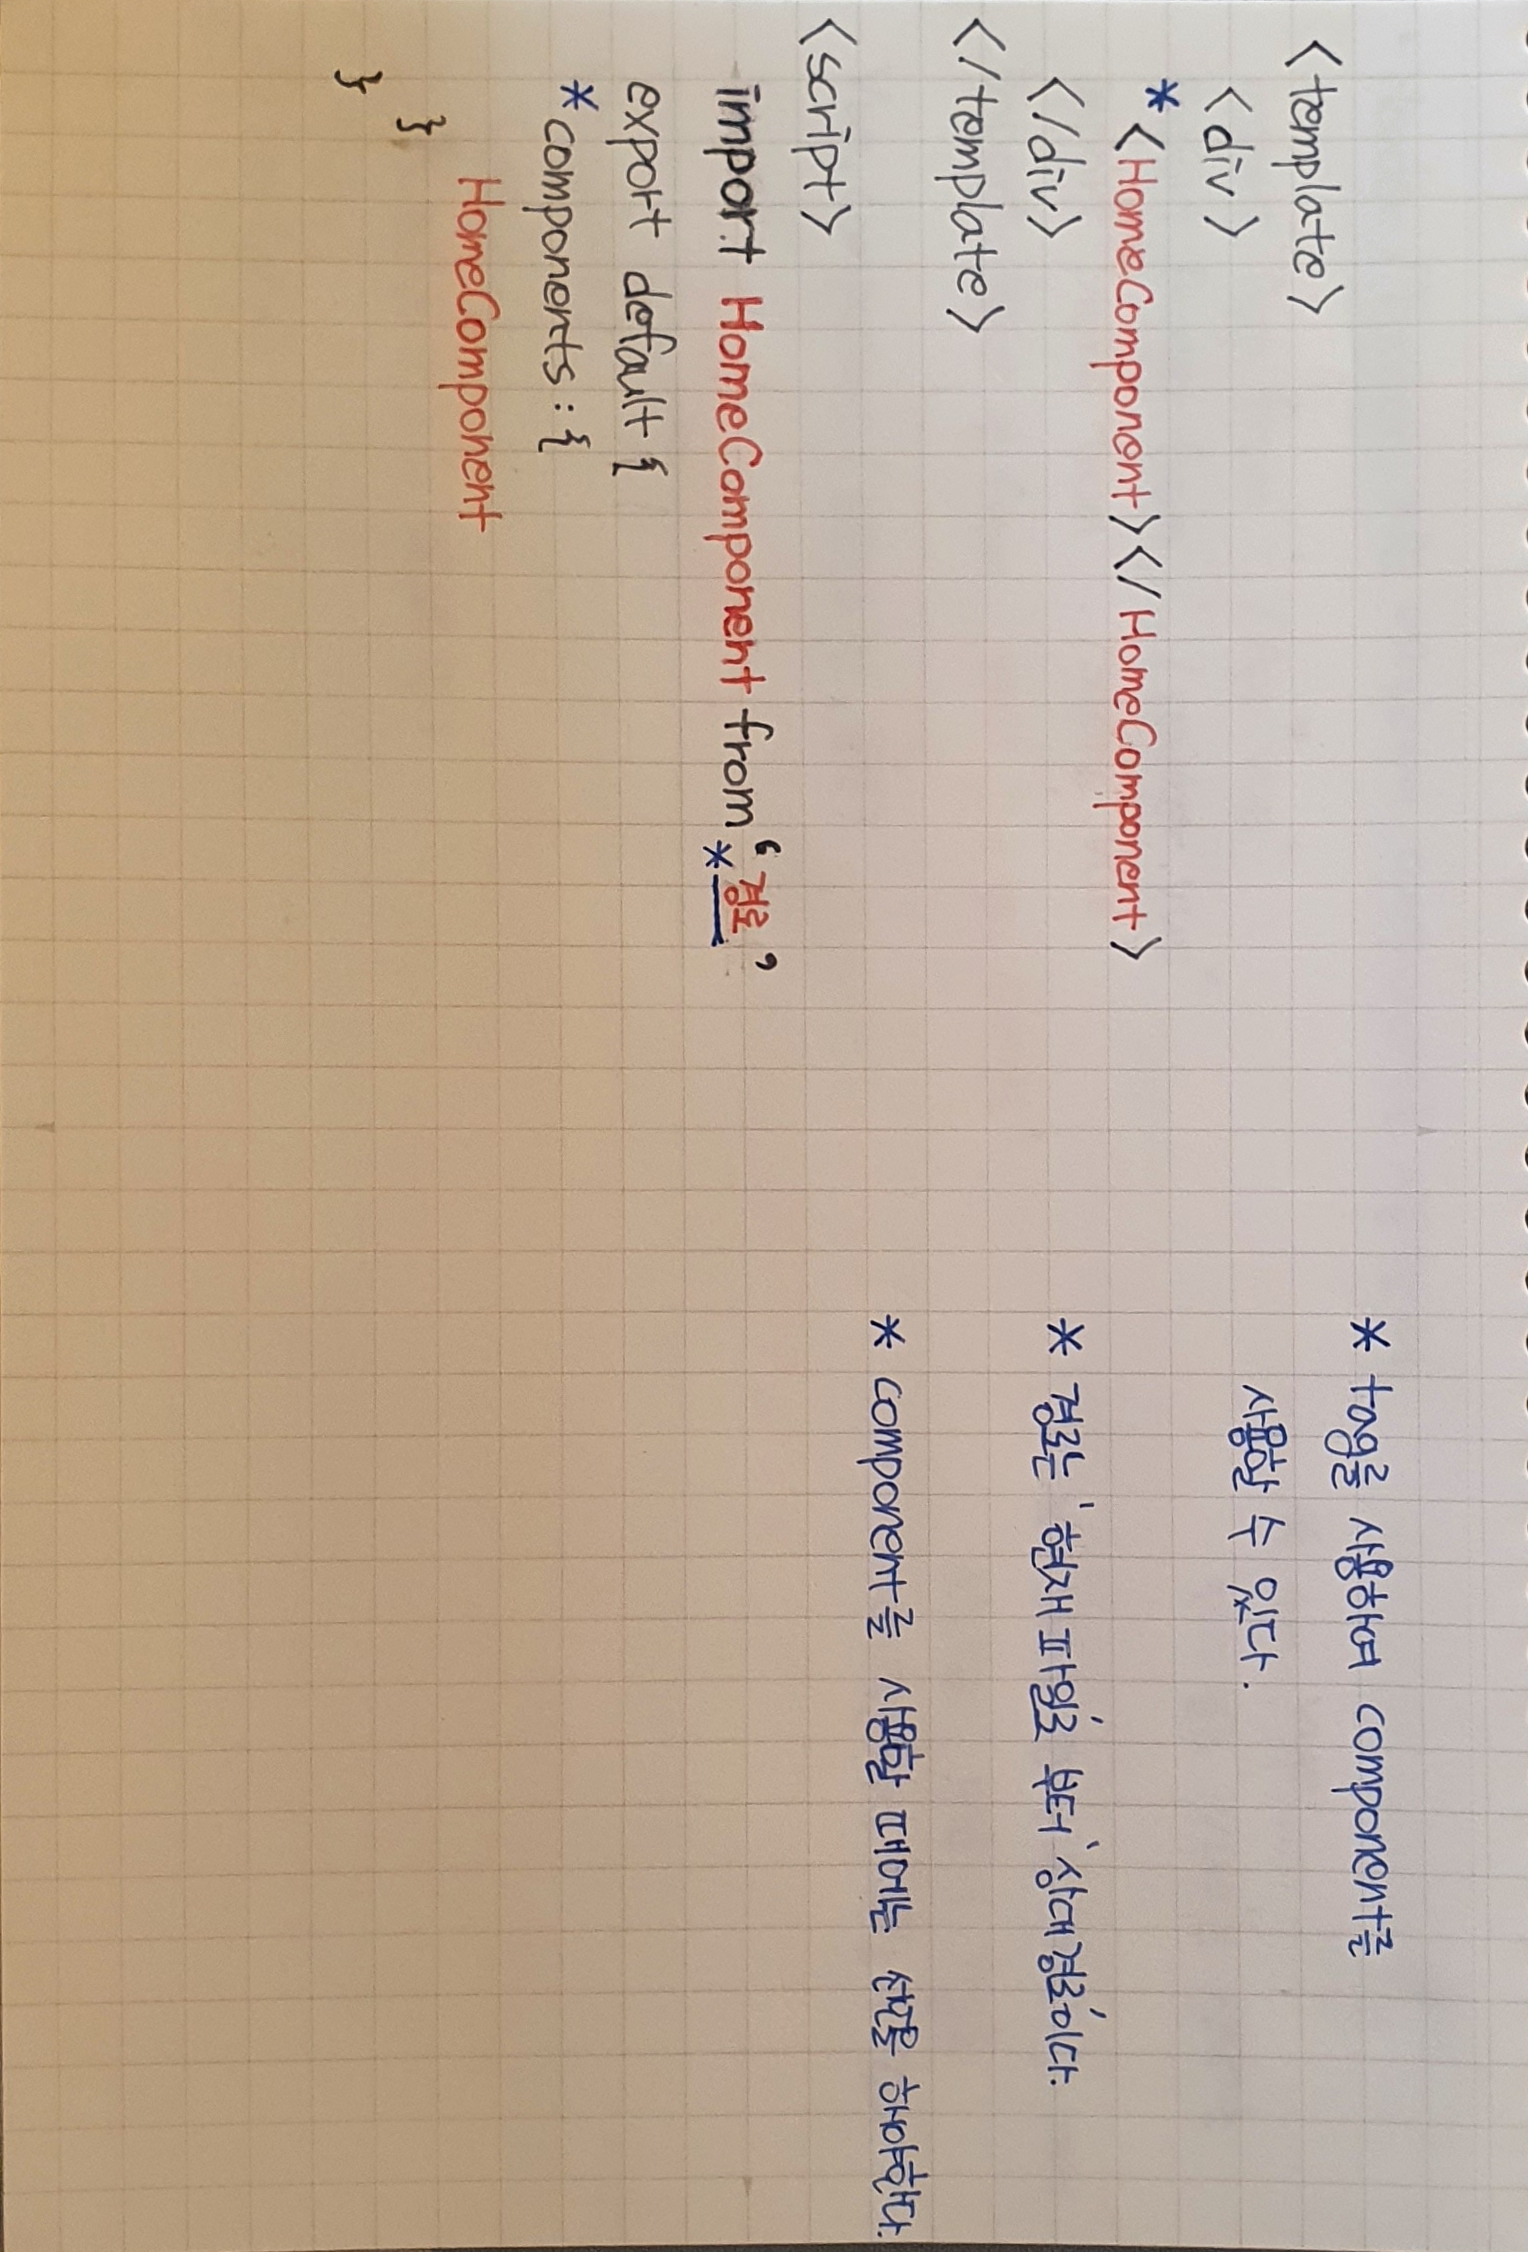 <template>
<div>
*<HomeComponent></HomeComponent>
</div>
</template>
<script>
import HomeComponent from '경로'
*
export default {
*components : {
HomeComponent
}
}
* tag를 사용하여 component를
사용할 수 있다.
* 경로는 '현재 파일'로 부터 '상대경로'이다.
* component를 사용할 때에는 선언을 해야한다.